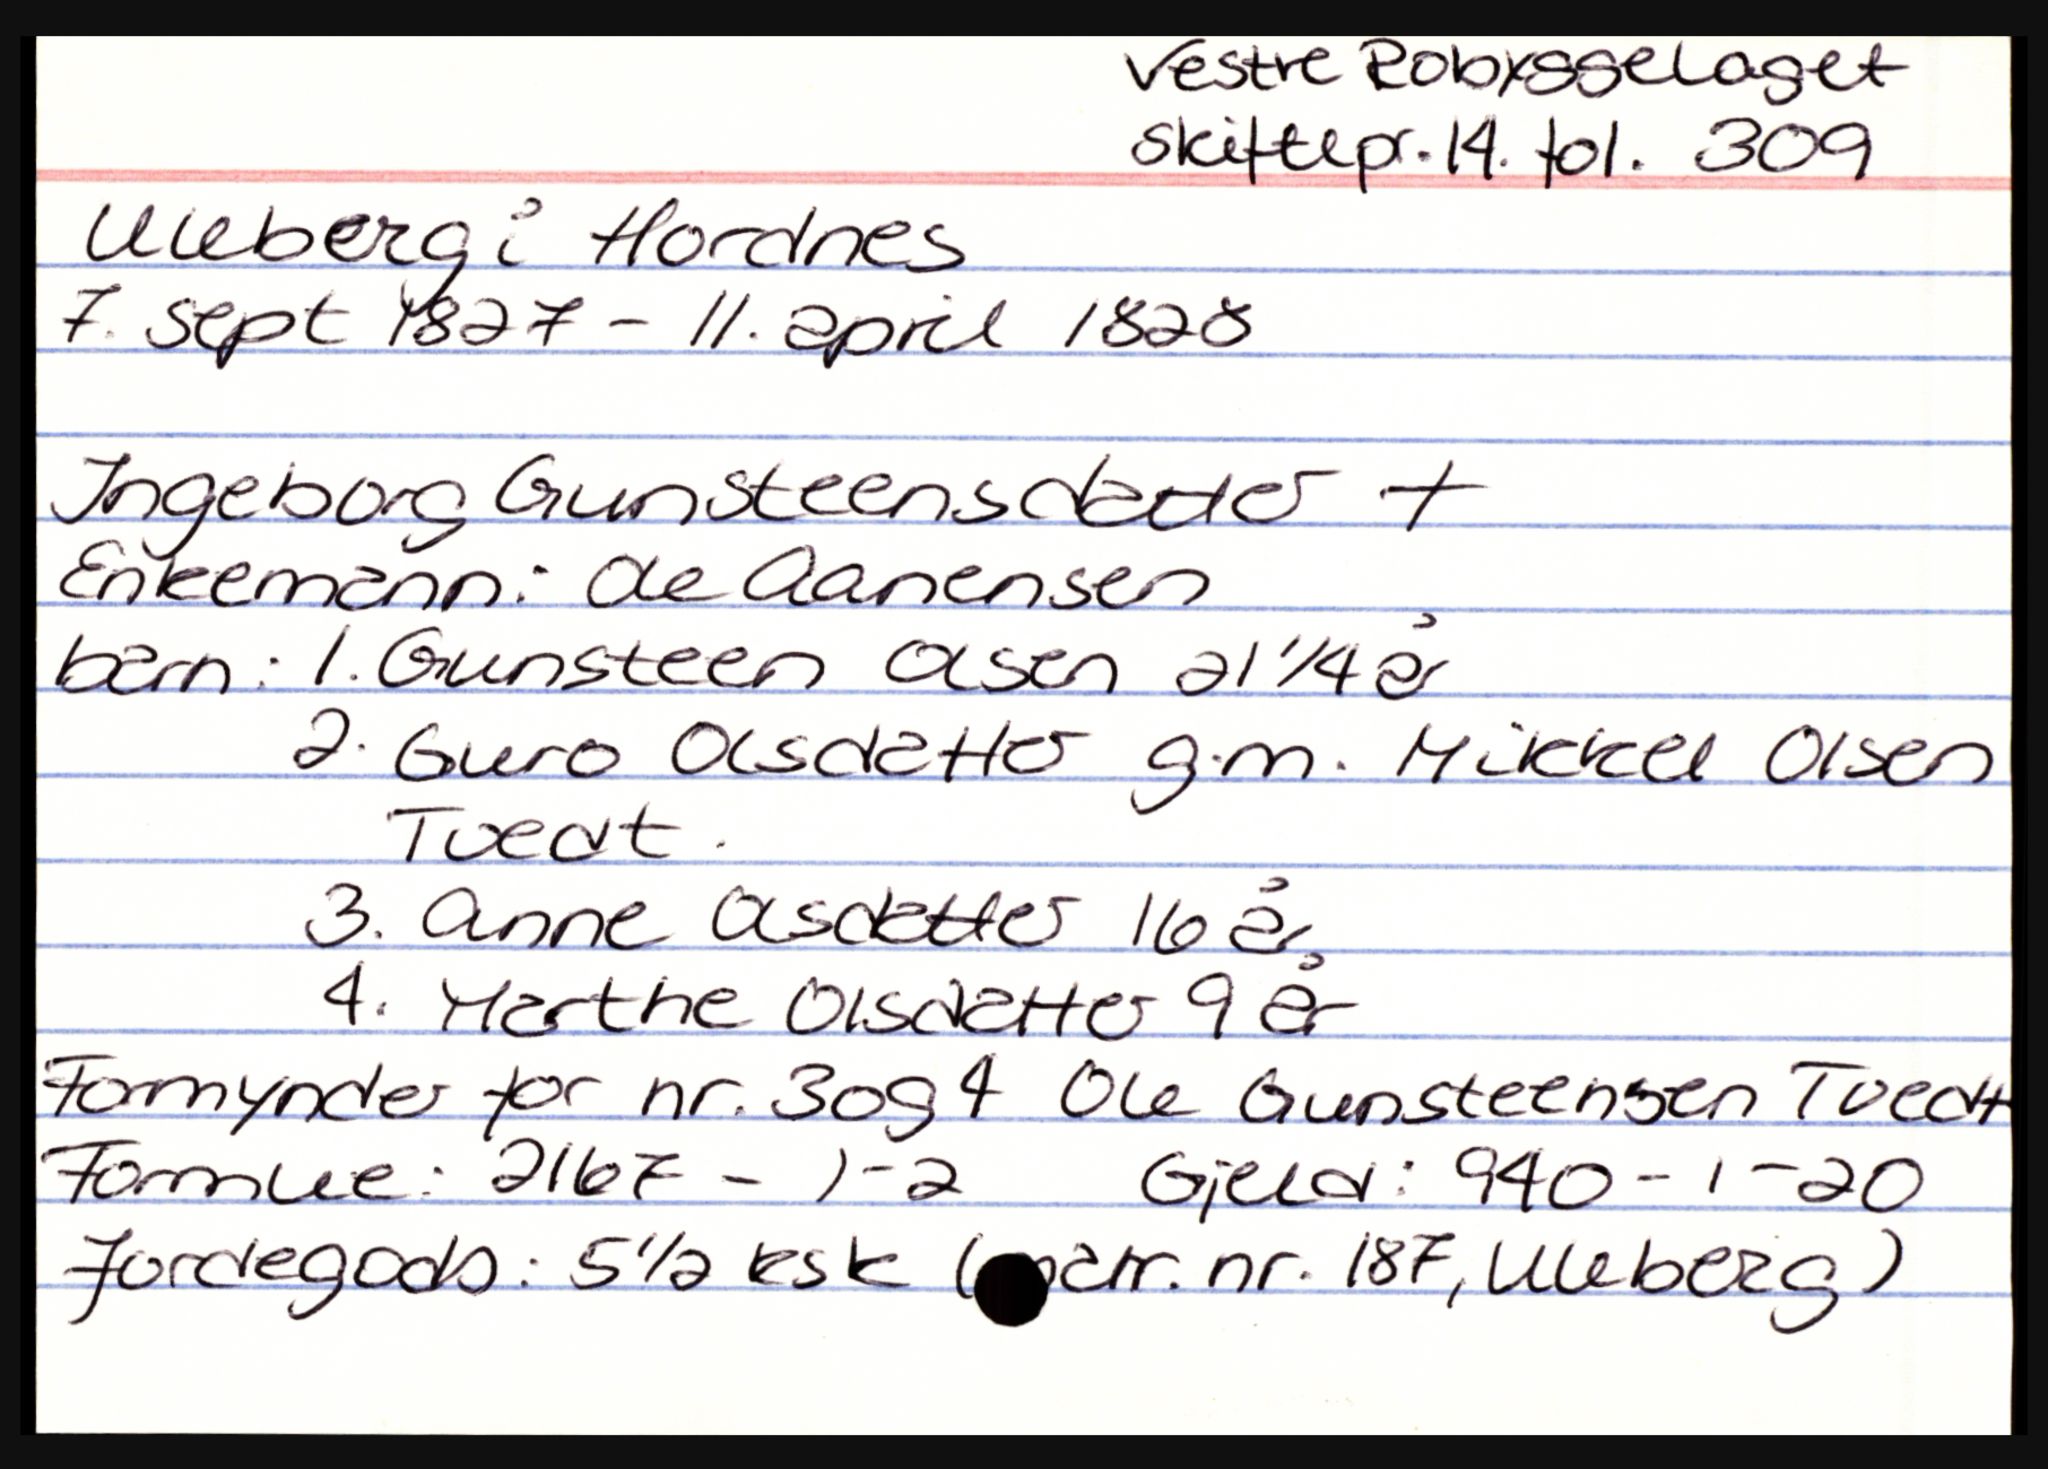 Vestre Robygselaget
Skiftepr. 14. fol. 309
Uleberg i Hordnes
7. sept 1827 - 11. april 1828
Ingeborg Gunsteensdatter +
Enkemann: Ole Aanensen
barn: 1. Gunsteen Olsen 21 1/4 år
2. Guro Olsdatter g.m. Mikkel Olsen
Tvedt.
3. Anne Olsdatter 16 år
4. Marthe Olsdatter 9 år
Formynder for nr. 3 og 4 Ole Gunsteensen Tvedt
Formue: 2167 - 1 - 2 Gjeld: 940 - 1 - 20
Jordegods: 5 1/2 ksk (matr. nr. 187, Uleberg)